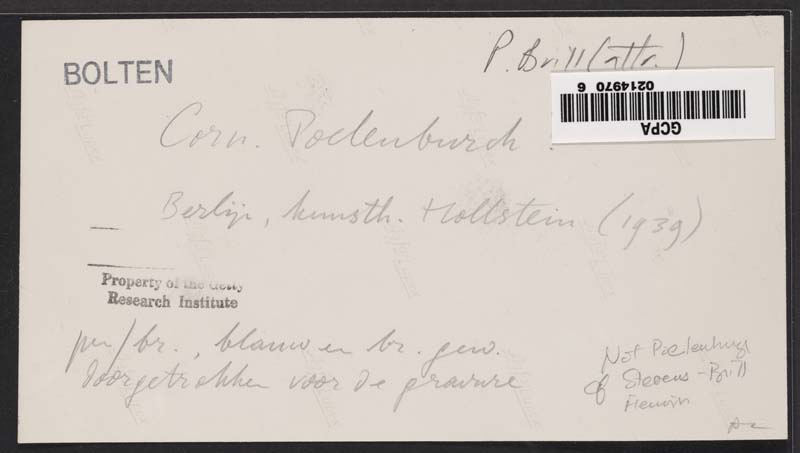 P. Brill (attr.)
BOLTEN
0214970 6
GCPA
Corn. Poelenburch.
Berlijn, kunsth. Hollstein (1939)
Property of the Getty
Research Institute
pen/br., blauw en br. gew.
doorgetrokken voor de gravure
Not Poelenburg
cf Stevens-Brill